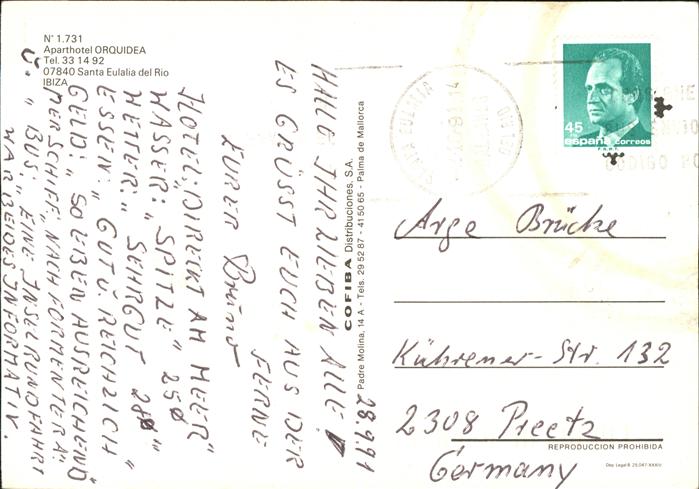 N° 1.731
Aparthotel ORQUIDEA
Tel. 33 14 92
07840 Santa Eulalia del Rio
IBIZA
28.9.91
HALLO IHR LIEBEN ALLE!
ES GRÜSST EUCH AUS DER
FERNE
EURER Bruno
HOTEL: „DIREKT AM MEER"
WASSER: „SPITZE" 25°
WETTER: „SEHR GUT 28°"
ESSEN: „GUT U. REICHLICH"
GELD: „SO EBEN AUSREICHEND"
PER SCHIFF „NACH FORMENTERA",
U. „BUS", EINE INSELRUNDFAHRT
WAR BEIDES INFORMATIV.
COFIBA Distribuciones, S.A.
Padre Molina, 14 A - Tels. 29 52 87 - 41 50 65 - Palma de Mallorca
45
españa correos
F.N.M.T.
Arge Brücke
Kührener-Str. 132
2308 Preetz
Germany
REPRODUCCION PROHIBIDA